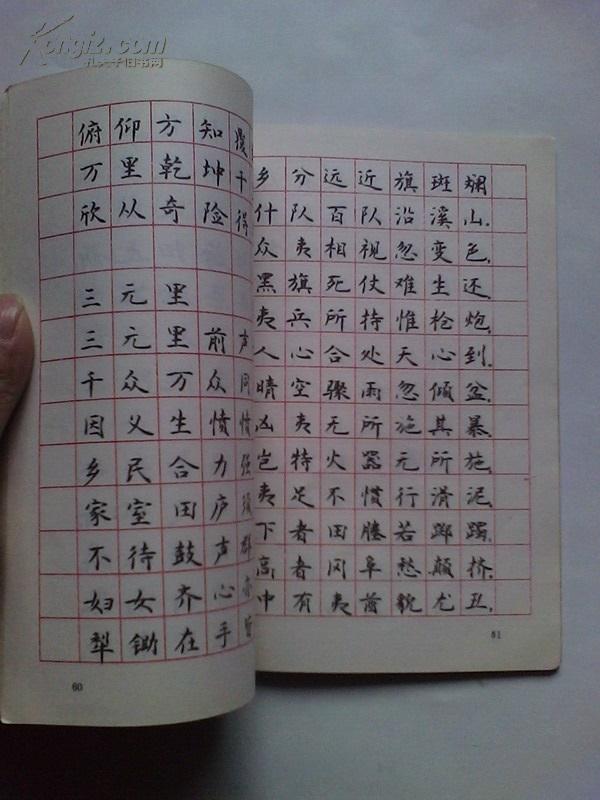 Kongfz.com
孔夫子旧书网
俯仰方知覆
万里乾坤千
欣从奇险得
三元里
三元里前声
千众万众同
因义生愤愤
乡民合力强
家室田庐须
不待鼓声群
妇女齐心亦
犁锄在手皆
60
乡分远近旗斑斓
什队百队沿溪山.
众夷相视忽变色,
黑旗死仗难生还.
夷兵所恃惟枪炮,
人心合处天心到.
晴空骤雨忽倾盆,
凶夷无所施其暴.
岂特火器无所施,
夷足不惯行滑泥.
下者田塍若踯躅,
高者冈阜愁颠挤.
中有夷酋貌尤丑,
61